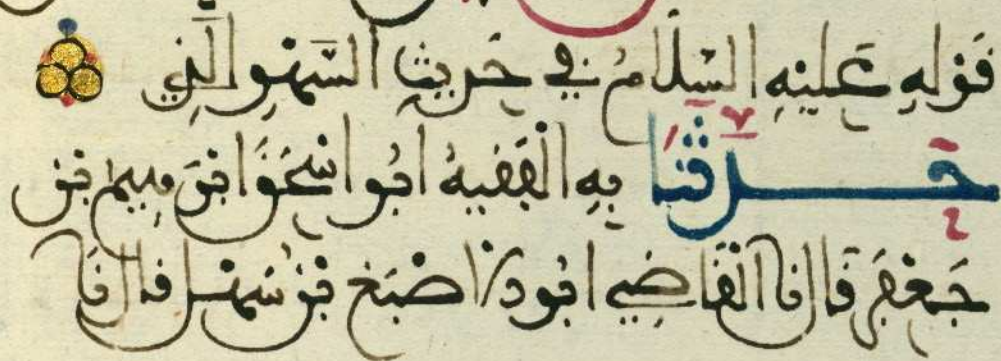 قوله عليه السلام في حديث السهو الذي
حدثنا به الفقيه ابو اسحق ابرهيم بن
جعفر قال نا القاضي ابو الاصبغ بن سهل قال نا